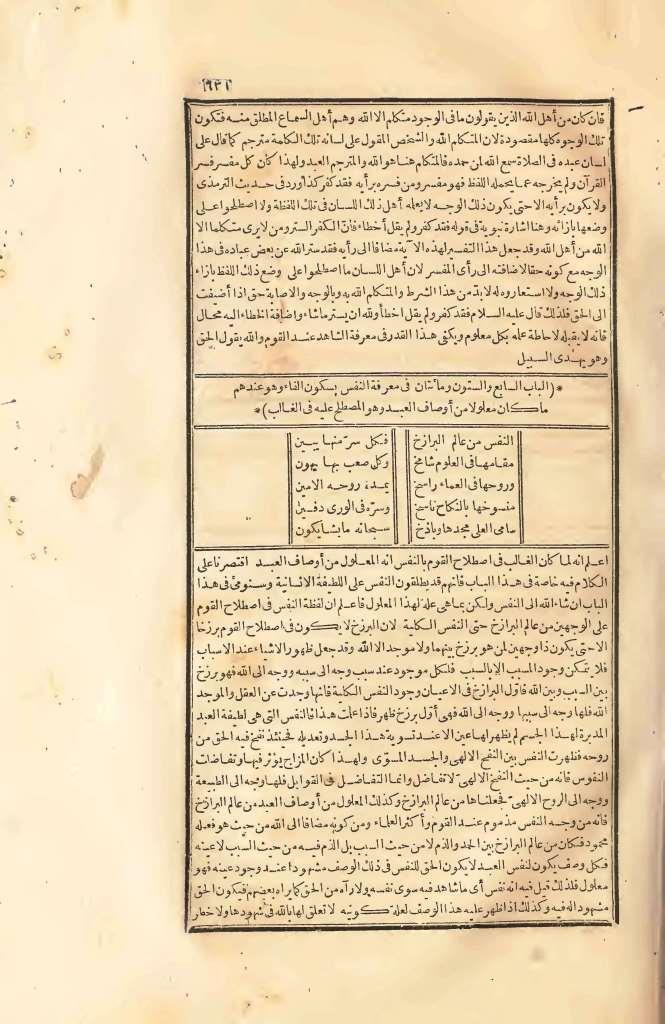 ٦٣١
فان كان من أهل الله الذين يقولون ما فى الوجود متكلم الا الله وهم أهل السماع المطلق منه فتكون
تلك الوجوه كلها مقصودة لان المتكلم الله والشخص المقول على لسانه تلك الكلمة مترجم كما قال على
لسان عبده فى الصلاة سمع الله لمن حمده فالمتكلم هنا هو الله والمترجم العبد ولهذا كان كل مفسر فسر
القرآن ولم يخرج عما يحتمله اللفظ فهو مفسر ومن فسره برأيه فقد كفر كذا ورد فى حديث الترمذى
ولا يكون برأيه الا حتى يكون ذلك الوجه لا يعلمه أهل ذلك اللسان فى تلك اللفظة ولا اصطلحوا على
وضعها بازائه وهنا اشارة نبوية فى قوله فقد كفر ولم يقل أخطأ فان الكفر الستر ومن لا يرى متكلما الا
الله من أهل الله وقد جعل هذا التفسير لهذه الآية مضافا الى رأيه فقد ستر الله عن بعض عباده فى هذا
الوجه مع كونه حقا لاضافته الى رأى المفسر لان أهل اللسان ما اصطلحوا على وضع ذلك اللفظ بازاء
ذلك الوجه ولا استعاروه له لا بد من هذا الشرط والمتكلم الله به وبالوجه والاصابة حق اذا أضيفت
الى الحق فلذلك قال عليه السلام فقد كفر ولم يقل اخطأ ولله ان يستر ما شاء واضافة الخطاء اليه محال
فانه لا يقبله لاحاطة علمه بكل معلوم ويكفى هذا القدر فى معرفة الشاهد عند القوم والله يقول الحق
وهو يهدى السبيل
*(الباب السابع والستون ومائتان فى معرفة النفس بسكون الفاء وهو عندهم
ما كان معلولا من أوصاف العبد وهو المصطلح عليه فى الغالب)*
النفس من عالم البرازخ فكل سر منها يبين
مقامها فى العلوم شامخ وكل صعب بها يهون
وروحها فى العماء راسخ يمده روحه الامين
منسوخها بالنكاح ناسخ وسره فى الورى دفين
سامى العلى مجدها وباذخ سبحانه ما يشا يكون
اعلم انه لما كان الغالب فى اصطلاح القوم بالنفس انه المعلول من أوصاف العبد اقتصرنا على
الكلام فيه خاصة فى هذا الباب فانهم قد يطلقون النفس على اللطيفة الانسانية وسنومئ فى هذا
الباب ان شاء الله الى النفس ولكن بما هى علة لهذا المعلول فاعلم ان لفظة النفس فى اصطلاح القوم
على الوجهين من عالم البرازخ حتى النفس الكلية لان البرزخ لا يكون فى اصطلاح القوم برزخا
الا حتى يكون ذا وجهين لمن هو برزخ بينهما ولا موجد الا الله وقد جعل ظهور الاشياء عند الاسباب
فلا يتمكن وجود المسبب الا بالسبب فلكل موجود عند سبب وجه الى سببه ووجه الى الله فهو برزخ
بين السبب وبين الله فاول البرازخ فى الاعيان وجود النفس الكلية فانها وجدت عن العقل والموجد
الله فلها وجه الى سببها ووجه الى الله فهى أول برزخ ظهر فاذا علمت هذا فالنفس التى هى لطيفة العبد
المدبرة لهذا الجسم لم يظهر لها عين الا عند تسوية هذا الجسد وتعديله فحينئذ نفخ فيه الحق من
روحه فظهرت النفس بين النفخ الالهى والجسد المسوى ولهذا كان المزاج يؤثر فيها وتفاضلت
النفوس فانه من حيث النفخ الالهى لا تفاضل وانما التفاضل فى القوابل فلها وجه الى الطبيعة
ووجه الى الروح الالهى فجعلناها من عالم البرازخ وكذلك المعلول من أوصاف العبد من عالم البرازخ
فانه من وجه النفس مذموم عند القوم وأكثر العلماء ومن كونه مضافا الى الله من حيث هو فعله
محمود فكان من عالم البرازخ بين الحمد والذم لا من حيث السبب بل الذم فيه من حيث السبب لا عينه
فكل وصف يكون لنفس العبد لا يكون الحق للنفس فى ذلك الوصف مشهودا عند وجود عينه فهو
معلول فلذلك قيل فيه انه نفس أى ما شاهد فيه سوى نفسه ولا رآه من الحق كما يراه بعضهم فيكون الحق
مشهودا له فيه وكذلك اذا ظهر عليه هذا الوصف لعلة كونية لا تعلق لها بالله فى شهودها ولا خطار